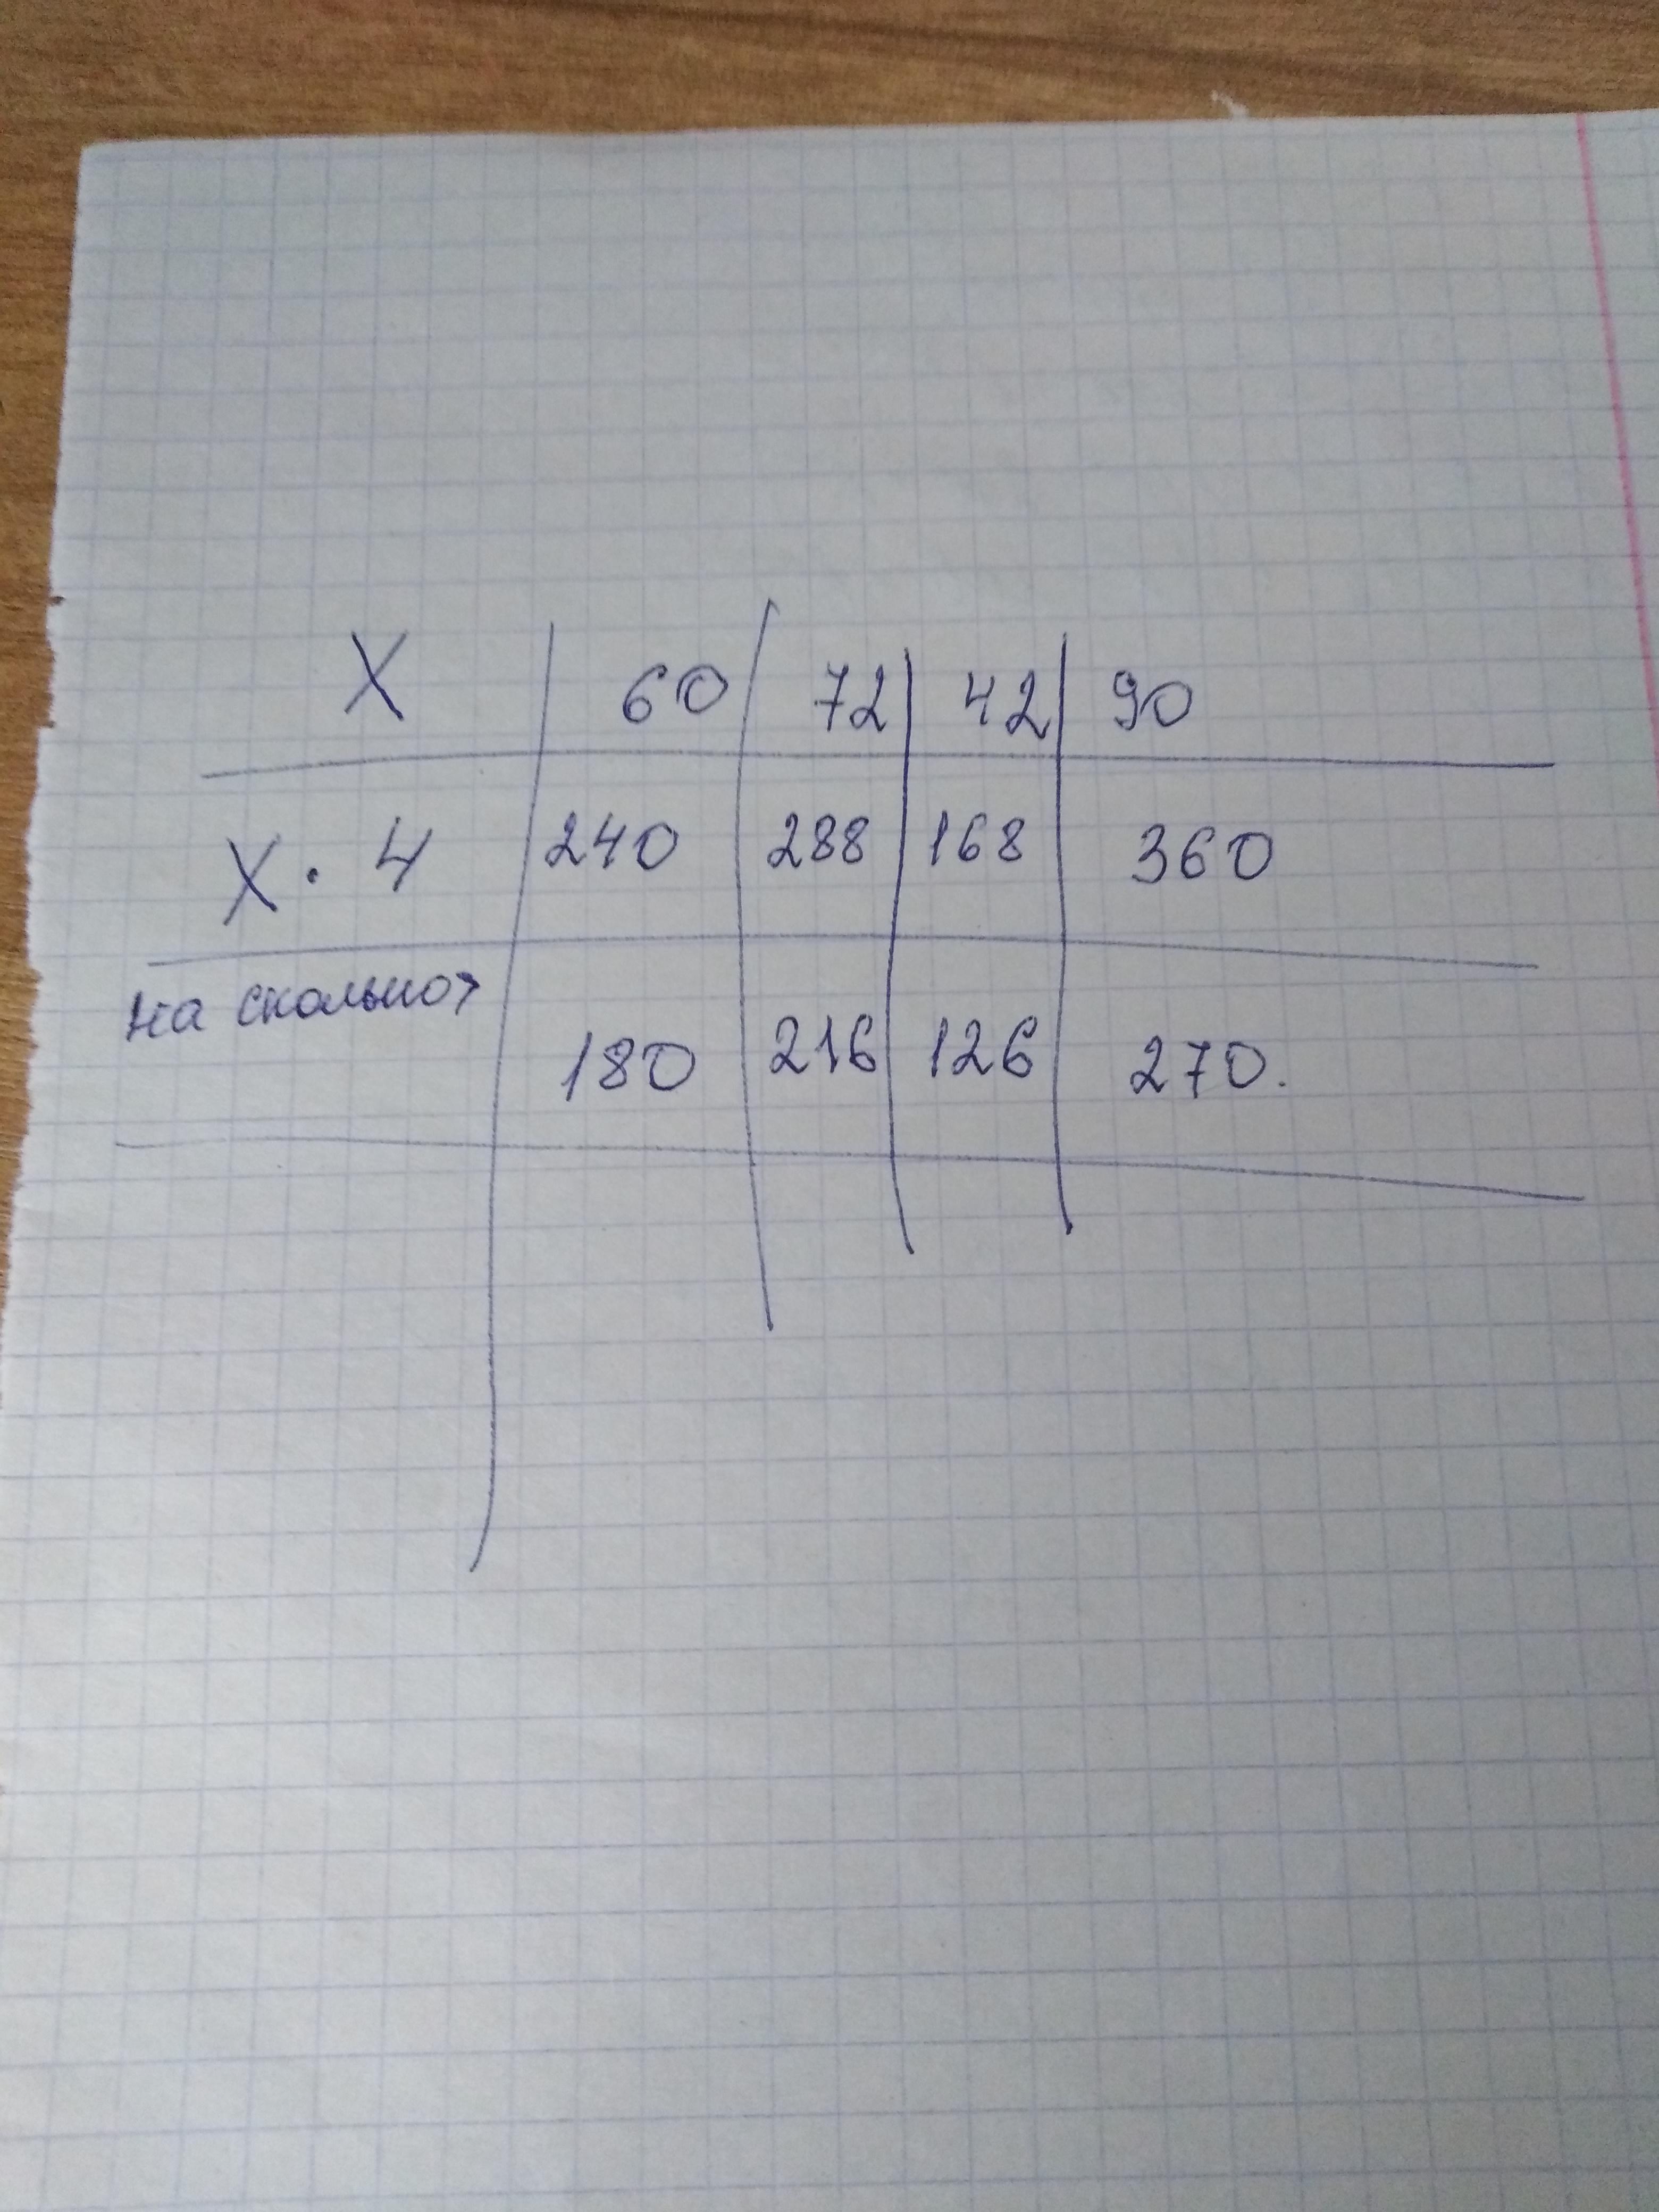 X 60 72 42 90
X · 4 240 288 168 360
на сколько>
180 216 126 270.